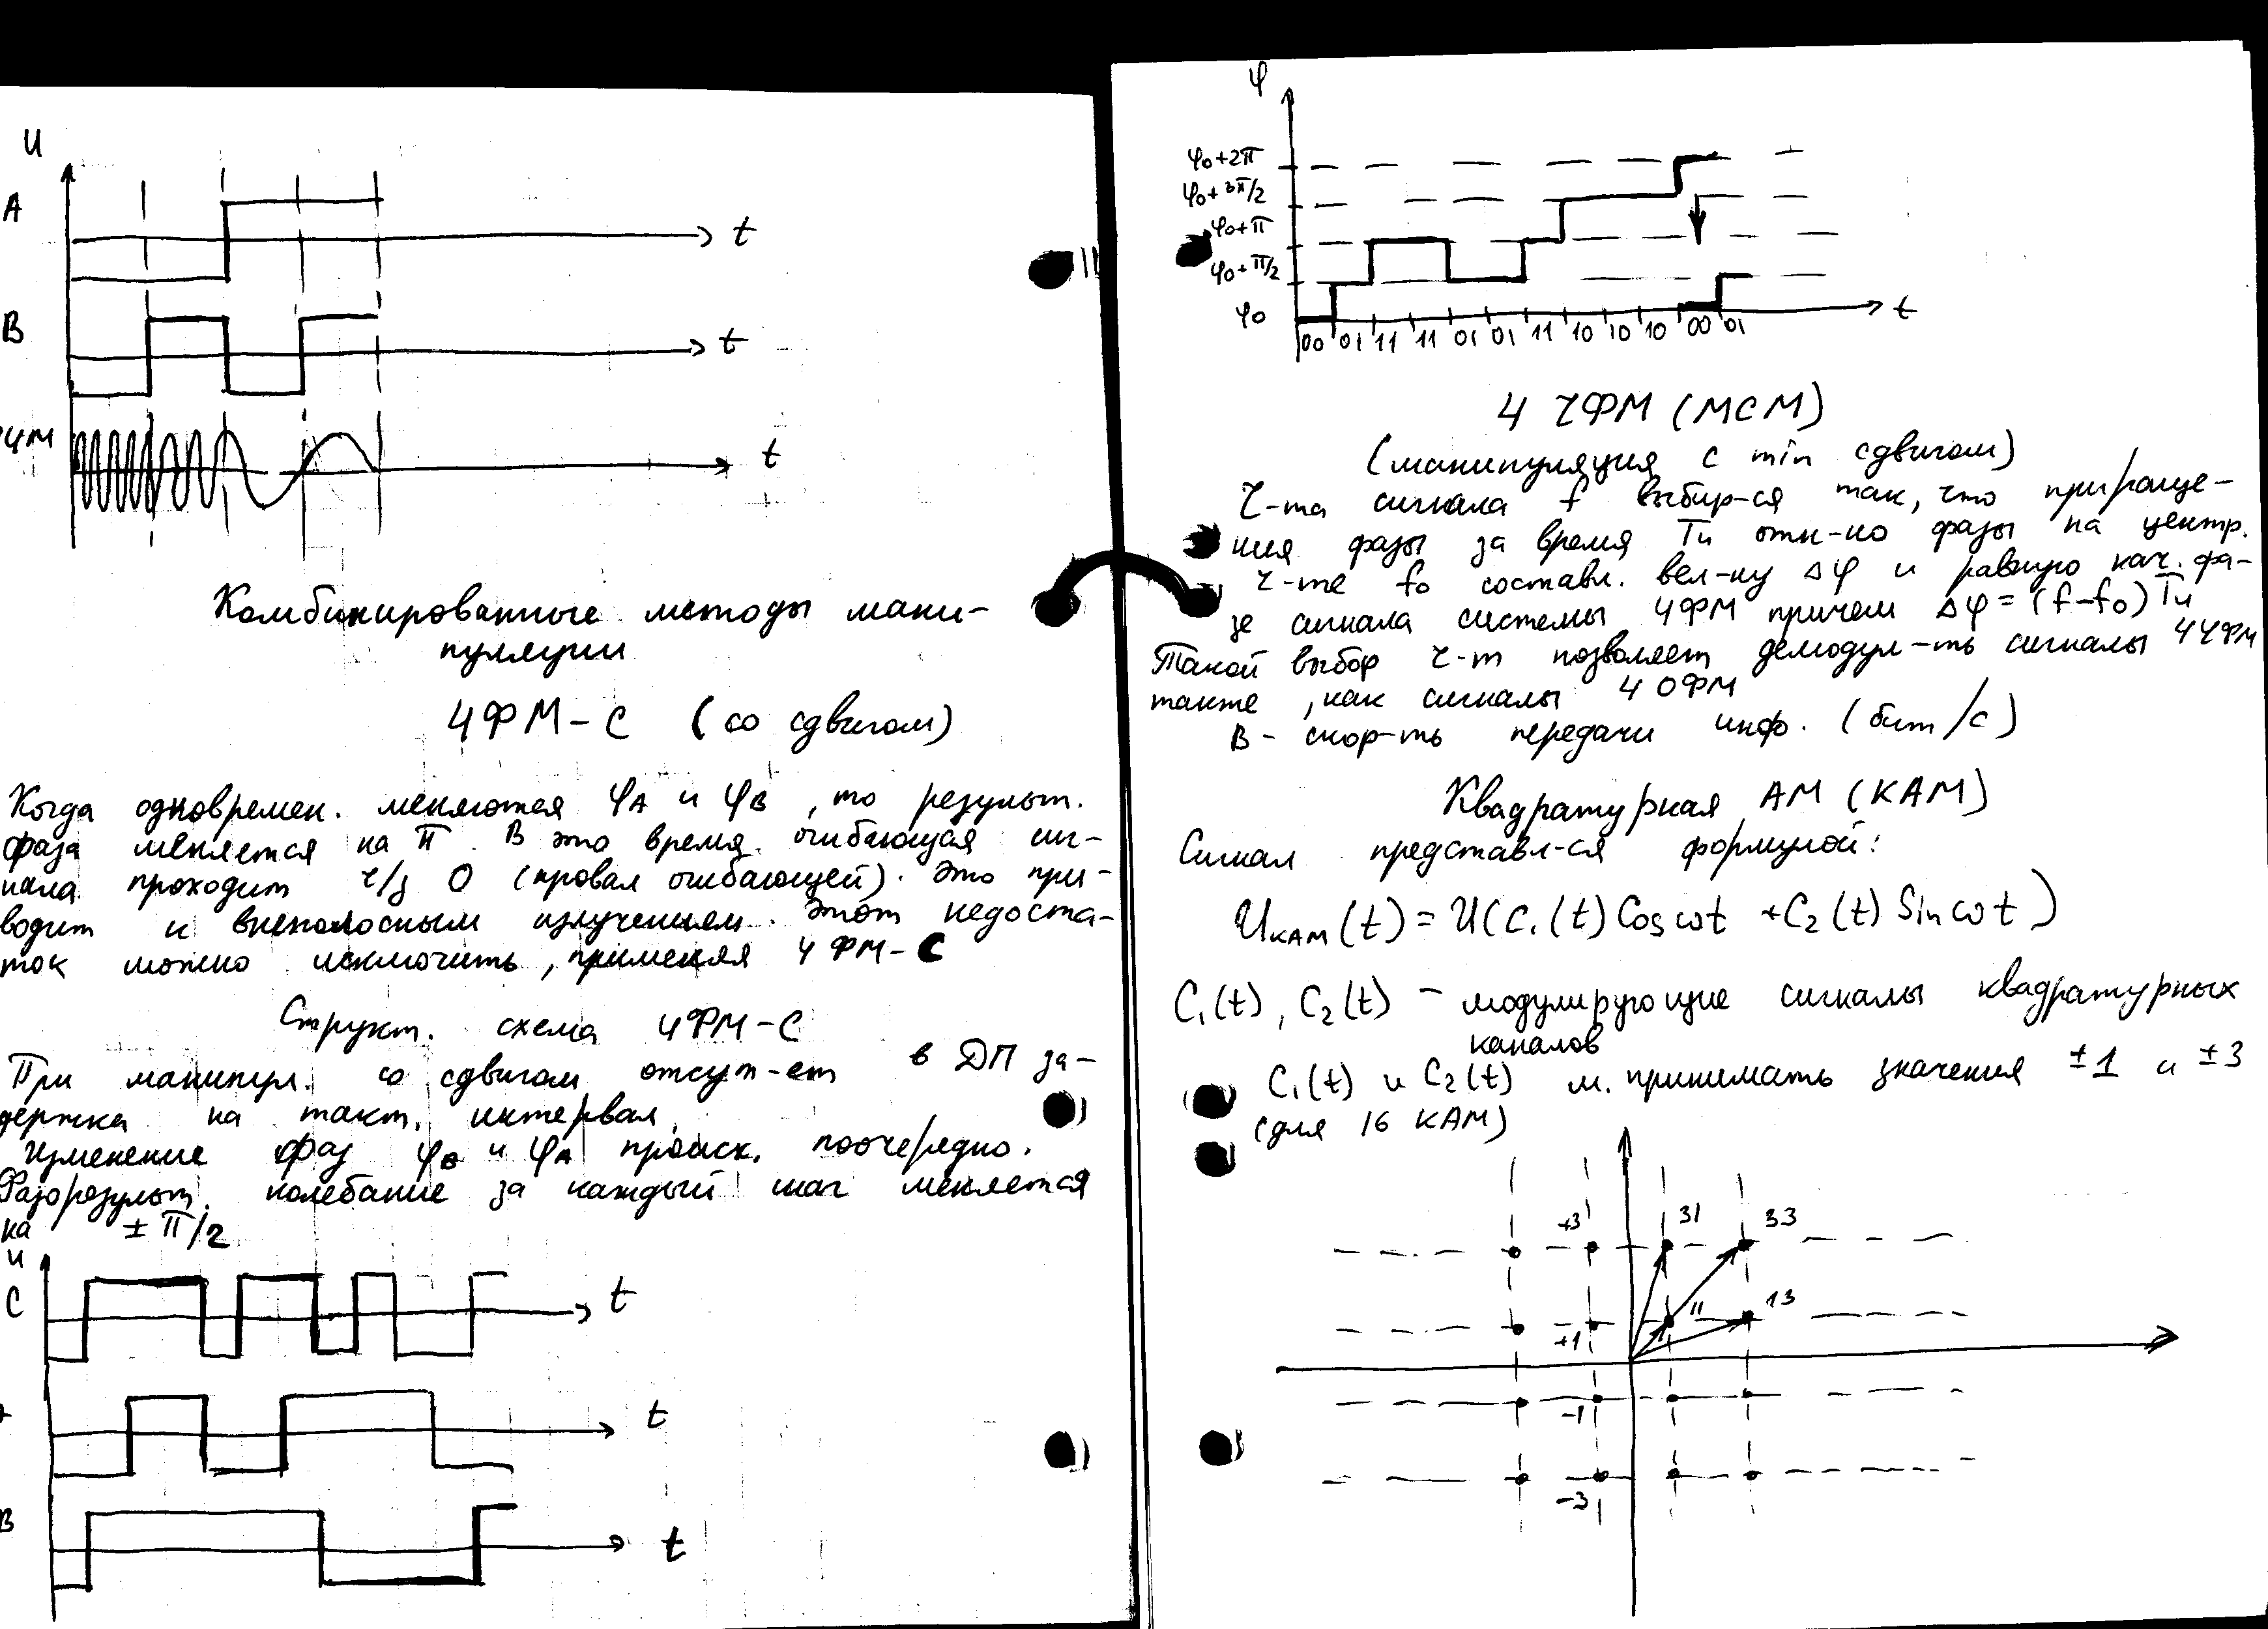 U
A
t
B
t
ЧМ
t
Комбинированные методы мани-
пуляции
4ФМ-С (со сдвигом)
Когда одновремен. меняются φA и φB, то результ.
фаза меняется на π. В это время огибающая сиг-
нала проходит ч/з 0 (провал огибающей). Это при-
водит к внеполосным излучениям. Этот недоста-
ток можно исключить, применяя 4ФМ-С
Структ. схема 4ФМ-С
При манипул. со сдвигом отсут-ет в ДП за-
держка на такт. интервал.
Изменение фаз φB и φA происх. поочередно.
Фаза результ. колебание за каждый шаг меняется
на ± π/2
u
C
t
t
B
t
φ
φ0+2π
φ0+3π/2
φ0+π
φ0+π/2
φ0
t
00 01 11 11 01 01 11 10 10 10 00 01
4 ЧФМ (МСМ)
(манипуляция с min сдвигом)
Ч-та сигнала f выбир-ся так, что прираще-
ния фазы за время Tи отн-но фазы на центр.
ч-те f0 составл. вел-ну Δφ и равную нач. фа-
зе сигнала системы 4ФМ причем Δφ = (f-f0)Tи
Такой выбор ч-т позволяет демодул-ть сигналы 4ЧФМ
также, как сигналы 4ОФМ
B - скор-ть передачи инф. (бит/с)
Квадратурная АМ (КАМ)
Сигнал представл-ся формулой:
UКАМ(t) = U(C1(t) Cos ωt + C2(t) Sin ωt)
C1(t), C2(t) - модулирующие сигналы квадратурных
каналов
C1(t) и C2(t) м. принимать значения ±1 и ±3
(для 16 КАМ)
+3 31 33
+1 11 13
-1
-3